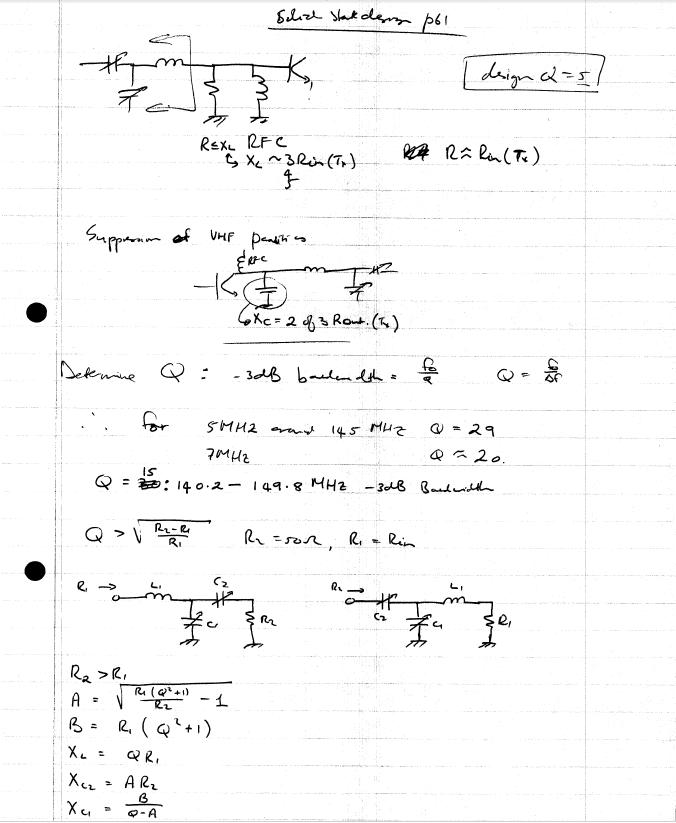 Solid state design p61
design Q = 5
R≤XL RFC
↳ XL ~ 3 Rin (Tx)
R ≈ Rin (Tx)
Suppression of VHF
RFC
↳ XC = 2 of 3 Rout. (Tx)
Determine Q : -3dB bandwidth = fo/Q Q = fo/Δf
∴ for 5MHz around 145 MHz Q = 29
7MHz Q ≈ 20.
Q = 15 : 140.2 – 149.8 MHz -3dB Bandwidth
Q > √((R2-R1)/R1) R2 = 50Ω, R1 = Rin
R1 → L1 C2 C1 R2
R2 → C2 L1 C1 R1
R2 > R1
A = √(R1(Q²+1)/R2 - 1)
B = R1 (Q²+1)
XL = QR1
XC2 = AR2
XC1 = B/(Q-A)